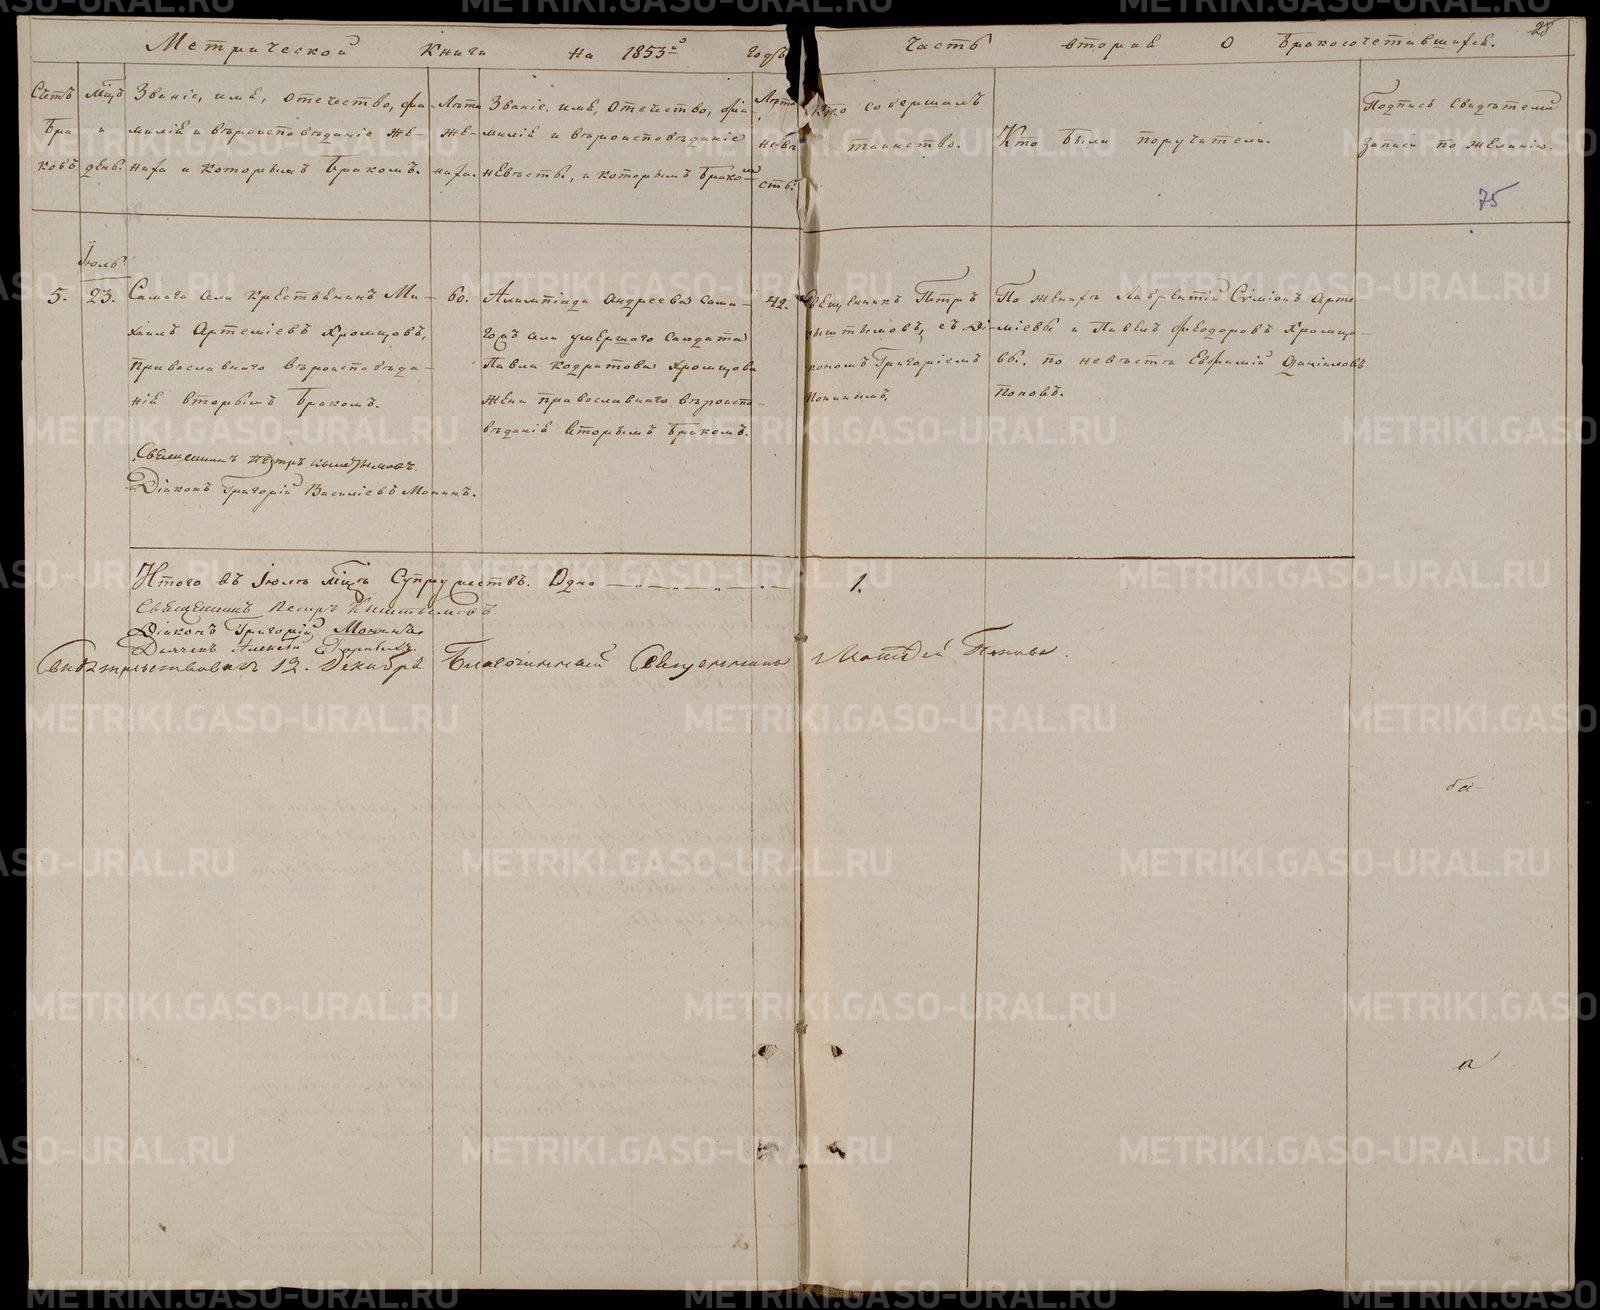 28
Метрической Книги на 1853й годъ Часть вторая о Бракосочетавшихся.
Счетъ Браковъ
Мѣсяцъ и день.
Званіе, имя, отечество, фа-
милія и вѣроисповѣданіе же-
ниха и которымъ Бракомъ.
Лѣта
же-
ниха.
Званіе, имя, отечество, фа-
милія и вѣроисповѣданіе
невѣсты, и которымъ Бракомъ
Лѣта
невѣ
сты.
Кто совершалъ
таинство.
Кто были поручители.
Подпись свидѣтелей
записи по желанію.
75
Іюль.
5.
23.
Самаго села крестьянинъ Ми-
хаилъ Артеміевъ Хромцовъ,
православнаго вѣроисповѣда-
нія вторымъ Бракомъ.
60.
Алимпіада Андреева сама-
гожъ села умершаго Солдата
Павла Кодратова Хромцова
жена православнаго вѣроиспо-
вѣданія вторымъ Бракомъ.
42.
Священникъ Петръ
Кыштымовъ, съ Ді-
кономъ Григоріемъ
Мониным,
По женихѣ Лаврентій Симіонъ Арте
міевы и Павелъ Феодоровъ Хромцо-
вы, по невѣстѣ Евфимій Даніиловъ
Поповъ.
Священникъ Петръ Кыштымовъ.
Діаконъ Григорій Василіевъ Монинъ.
Итого въ Іюлѣ мѣсяцѣ Супружествъ. Одно 1.
Священникъ Петръ Кыштымовъ.
Діаконъ Григорій Монинъ
Дьячекъ Алексѣй
Свидѣтельствовалъ 12. Декабря Благочинный Священникъ Матѳей Поповъ.
METRIKI.GASO-URAL.RU